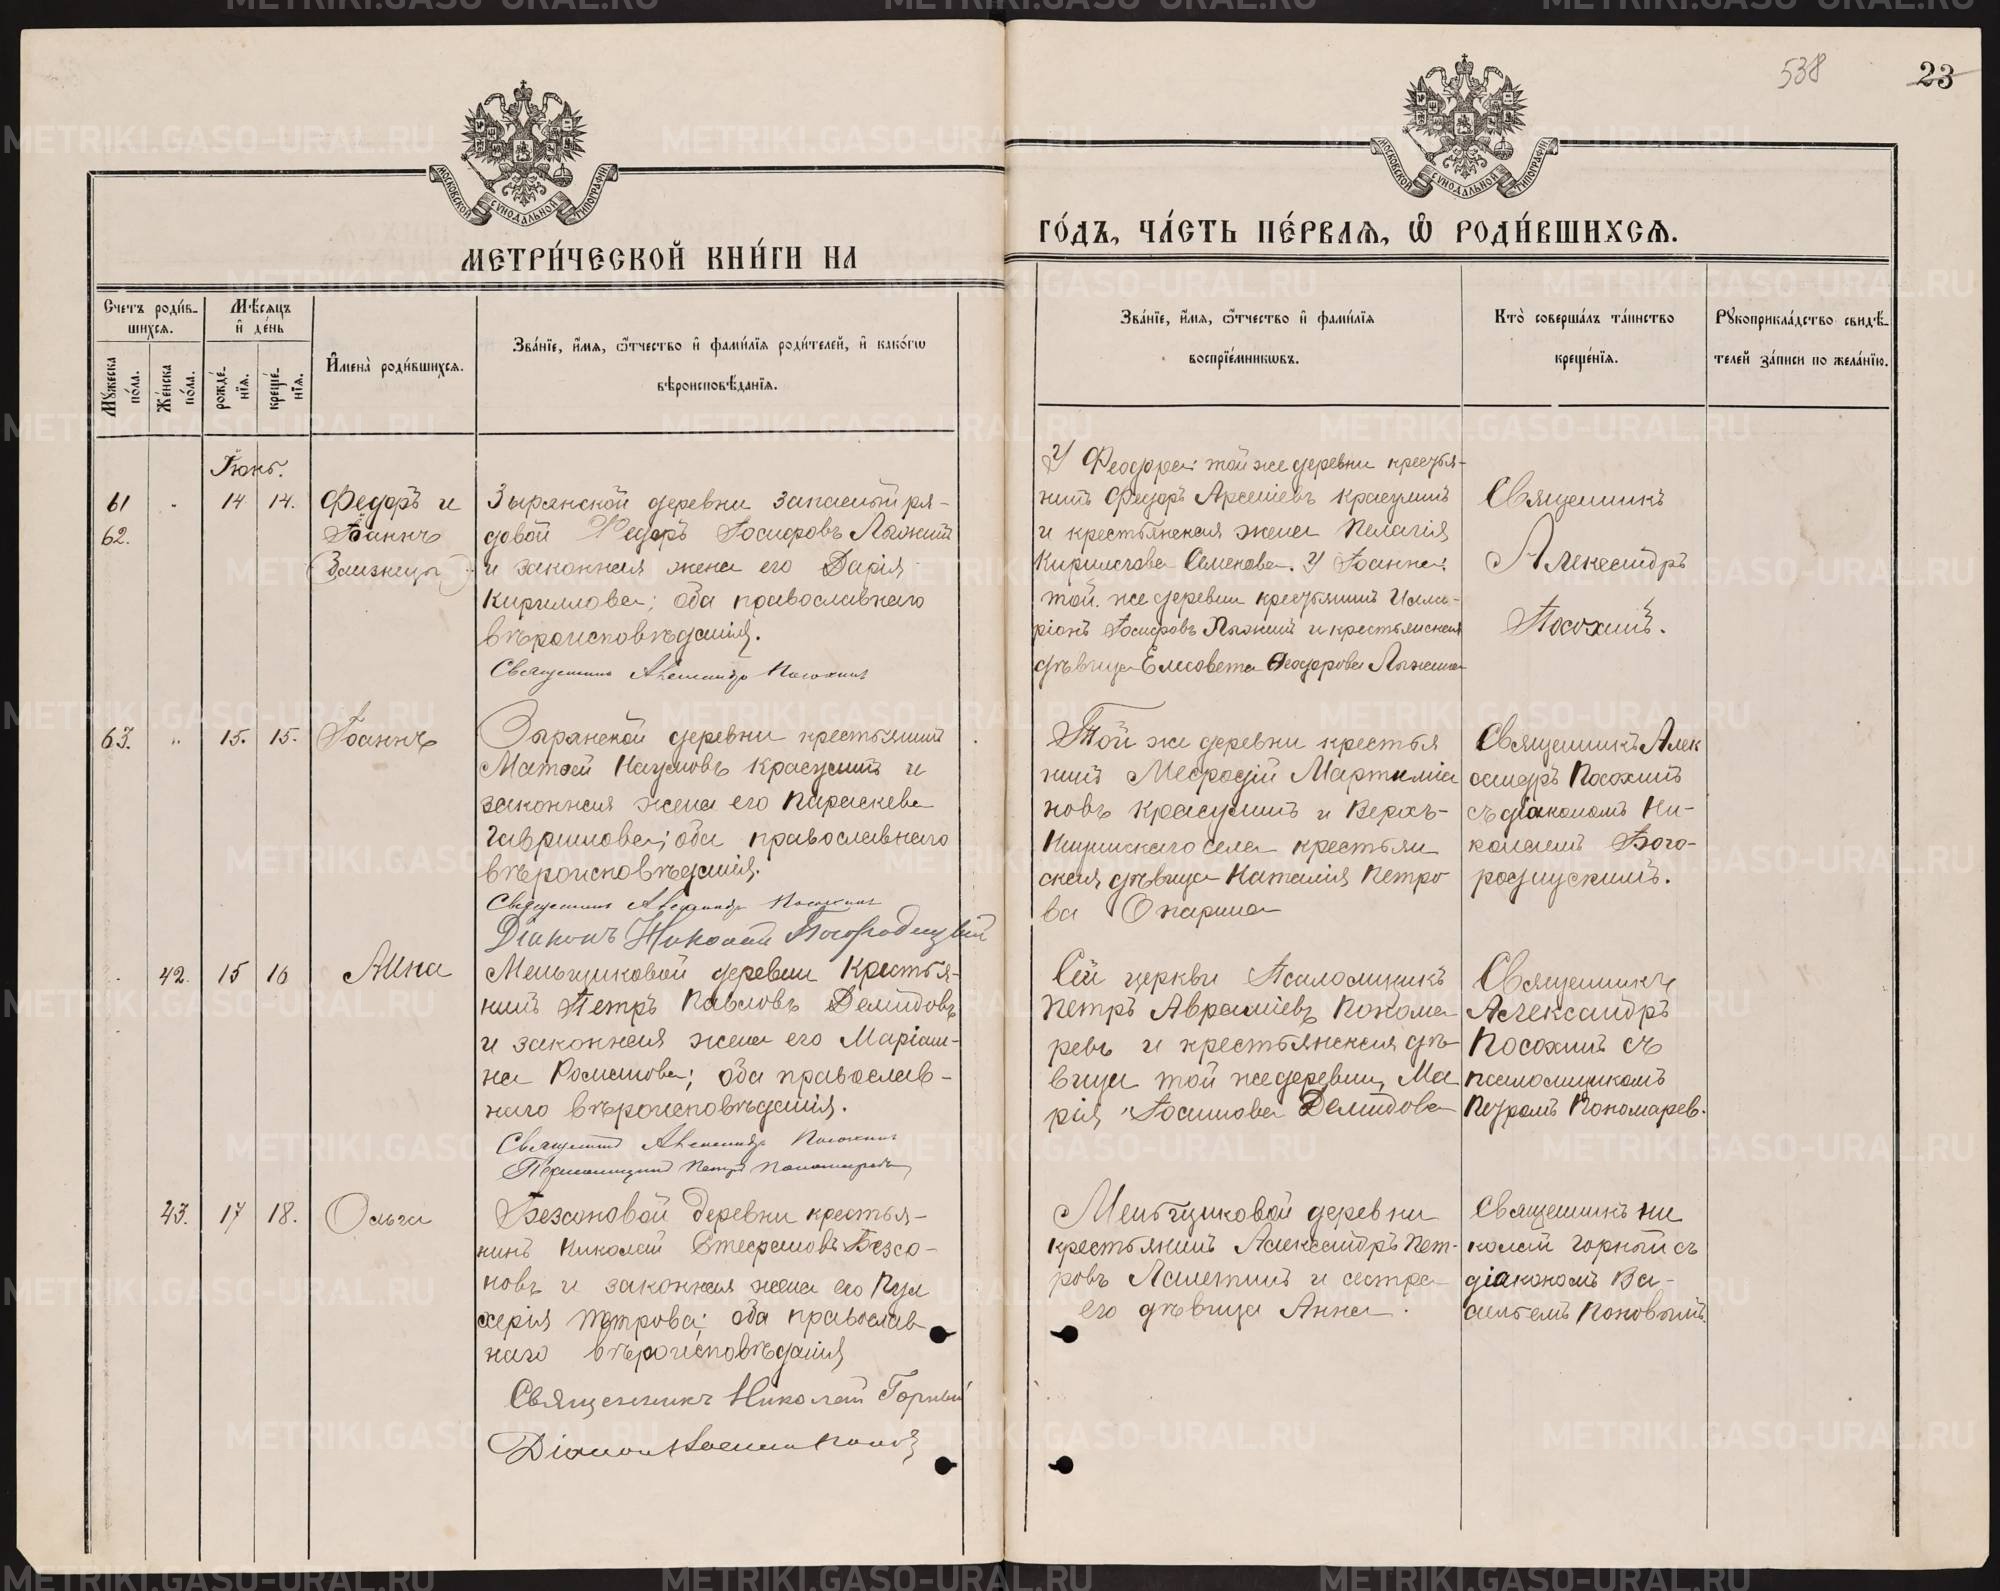 538
23
МОСКОВСКОЙ СѴНОДАЛЬНОЙ ТИПОГРАФІИ
МОСКОВСКОЙ СѴНОДАЛЬНОЙ ТИПОГРАФІИ
МЕТРИ́ЧЕСКОЙ КНИ́ГИ НА
ГО́ДЪ, ЧА́СТЬ ПЕ́РВАЯ, Ѡ҆ РОДИ́ВШИХСЯ.
Счетъ роди́в-
шихся.
Мѣ́сяцъ
и҆ де́нь
Мꙋ́жеска по́ла.
Же́нска по́ла.
рожде́-нїя.
креще́-нїя.
И҆мена̀ роди́вшихся.
Зва́нїе, и҆́мя, ѻ҆́тчество и҆ фами́лїя роди́телей, и҆ како́гѡ
вѣроисповѣ́данїя.
Зва́нїе, и҆́мя, ѻ҆́тчество и҆ фами́лїя
воспрїе́мникѡвъ.
Кто̀ соверша́лъ та́инство
креще́нїя.
Рꙋкоприкла́дство свидѣ́-
телей за́писи по жела́нїю.
Іюнь.
61 14 14. Федоръ и
62. Іоаннъ
(Близнецы)
Зырянской деревни запасный ря-
довой Федоръ Іосифовъ Лыжинъ
и законная жена его Дарія
Кириллова; оба православнаго
вѣроисповѣданія.
Священникъ Александръ Посохинъ
У Феодора: той же деревни крестья-
нинъ Федоръ Арсеніевъ Красулинъ
и крестьянская жена Пелагія
Кириллова Семенова. У Іоанна:
той же деревни крестьянинъ Илла-
ріонъ Іосифовъ Лыжинъ и крестьянская
дѣвица Елисовета Феодорова Лыжина
Священникъ
Александръ
Посохинъ.
63. " 15. 15. Іоаннъ
Зырянской деревни крестьянинъ
Матѳей Наумовъ Красулинъ и
законная жена его Параскева
Гаврилова; оба православнаго
вѣроисповѣданія.
Священникъ Александръ Посохинъ
Діаконъ Николай Богородицкій
Той же деревни крестья
нинъ Меѳодій Мартиміа
новъ Красулинъ и Верхъ-
села крестьян
ская дѣвица Наталія Петро
ва Опарина
Священникъ Алек
сандръ Посохинъ
съ діакономъ Ни-
колаемъ Бого-
родицкимъ.
42. 15 16 Анна
Меньщиковой деревни Крестья-
нинъ Петръ Павловъ Демидовъ
и законная жена его Маріам-
на Романова; оба православ-
наго вѣроисповѣданія.
Священникъ Александръ Посохинъ
Псаломщикъ Петръ Пономаревъ
Сей церкви Псаломщикъ
Петръ Авраміевъ Понома
ревъ и крестьянская дѣ-
вица той же деревни, Ма
рія Іоаннова Демидова
Священникъ
Александръ
Посохинъ съ
псаломщикомъ
Петромъ Пономарев.
43. 17 18. Ольга
Безсоновой деревни крестья-
нинъ Николай Стефановъ Безсо-
новъ и законная жена его Пул
херія Петрова; оба православ
наго вѣроисповѣданія
Священникъ Николай Горный
Діаконъ Попов
Меньщиковой деревни
крестьянинъ Александръ Пет-
ровъ и сестра
его дѣвица Анна.
Священникъ Ни
колай Горный съ
діакономъ Ва-
силіемъ Поповымъ.
METRIKI.GASO-URAL.RU